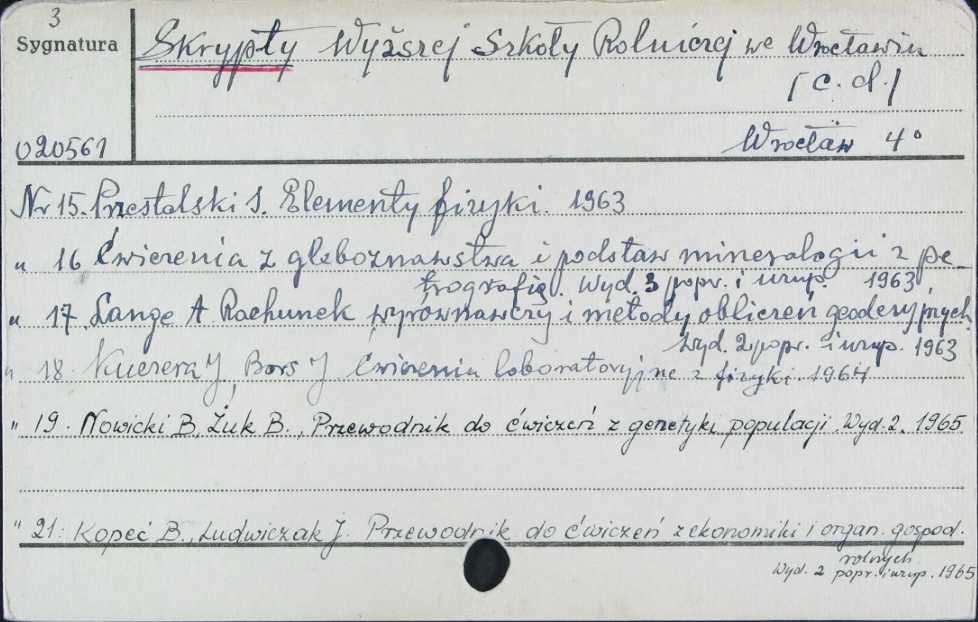 3
Sygnatura
Skrypty Wyższej Szkoły Rolniczej we Wrocławiu
(c. d.)
020561
Wrocław 4°
Nr 15. Przestalski S. Elementy fizyki. 1963
" 16 Ćwiczenia z gleboznawstwa i podstaw mineralogii z pe-
trografią. Wyd. 3 popr. i uzup. 1963
" 17 Lange A Rachunek wyrównawczy i metody obliczeń geodezyjnych
Wyd. 2 popr. i uzup. 1963
" 18 Kuczera J, Bors J Ćwiczenia laboratoryjne z fizyki 1964
" 19. Nowicki B, Żuk B., Przewodnik do ćwiczeń z genetyki populacji. Wyd. 2. 1965
" 21. Kopeć B., Ludwiczak J. Przewodnik do ćwiczeń z ekonomiki i organ. gospod.
rolnych
Wyd. 2 popr. i uzup. 1965